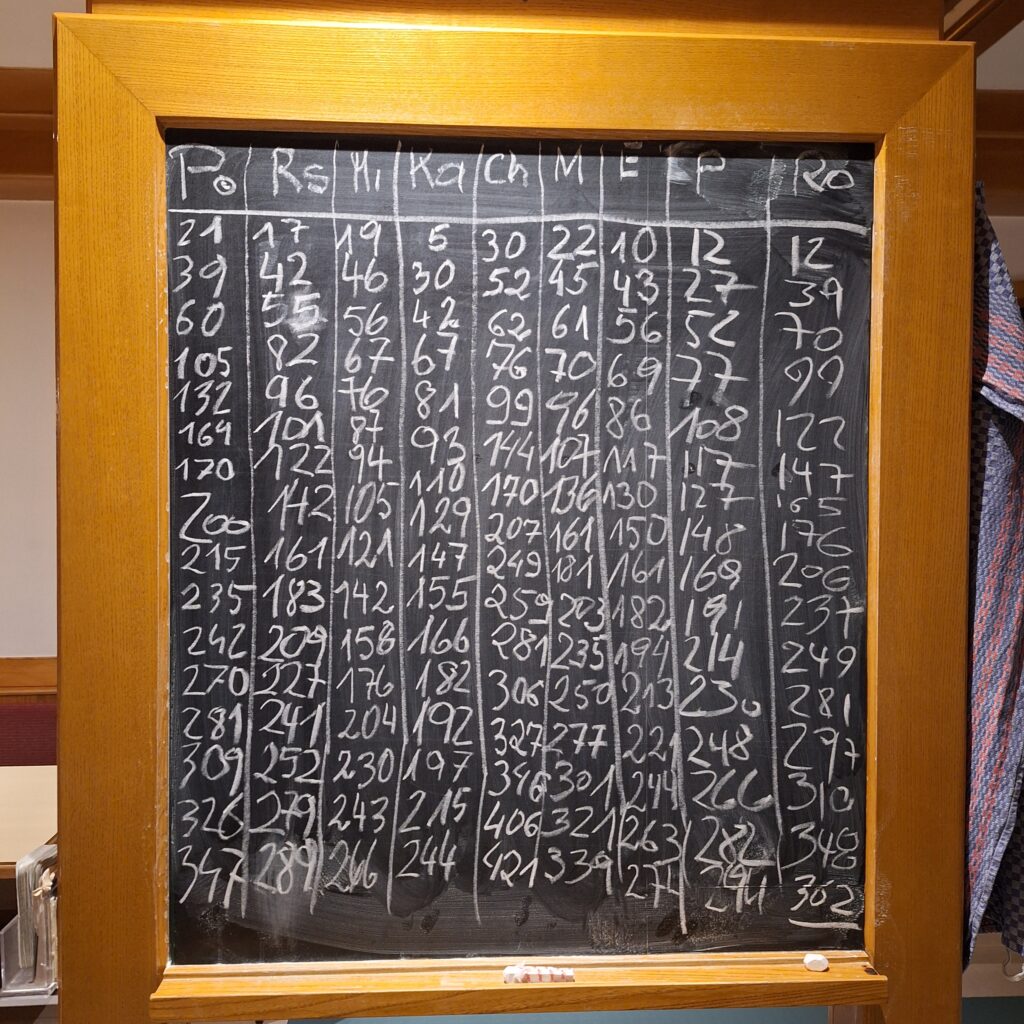 Po Rs Mi Ka Ch M E P Ro
21 17 19 5 30 22 10 12 12
39 42 46 30 52 45 43 27 39
60 55 56 42 62 61 56 52 70
105 82 67 67 76 70 69 77 99
132 96 76 81 99 96 86 108 122
164 101 87 93 144 107 117 117 147
170 122 94 110 170 136 130 127 165
200 142 105 129 207 161 150 148 176
215 161 121 147 249 181 161 169 206
235 183 142 155 259 203 182 191 237
242 209 158 166 281 235 194 214 249
270 227 176 182 306 250 213 230 281
281 241 204 192 327 277 221 248 297
309 252 230 197 346 301 244 266 310
326 279 243 215 406 321 263 282 348
347 289 266 244 421 339 274 294 352